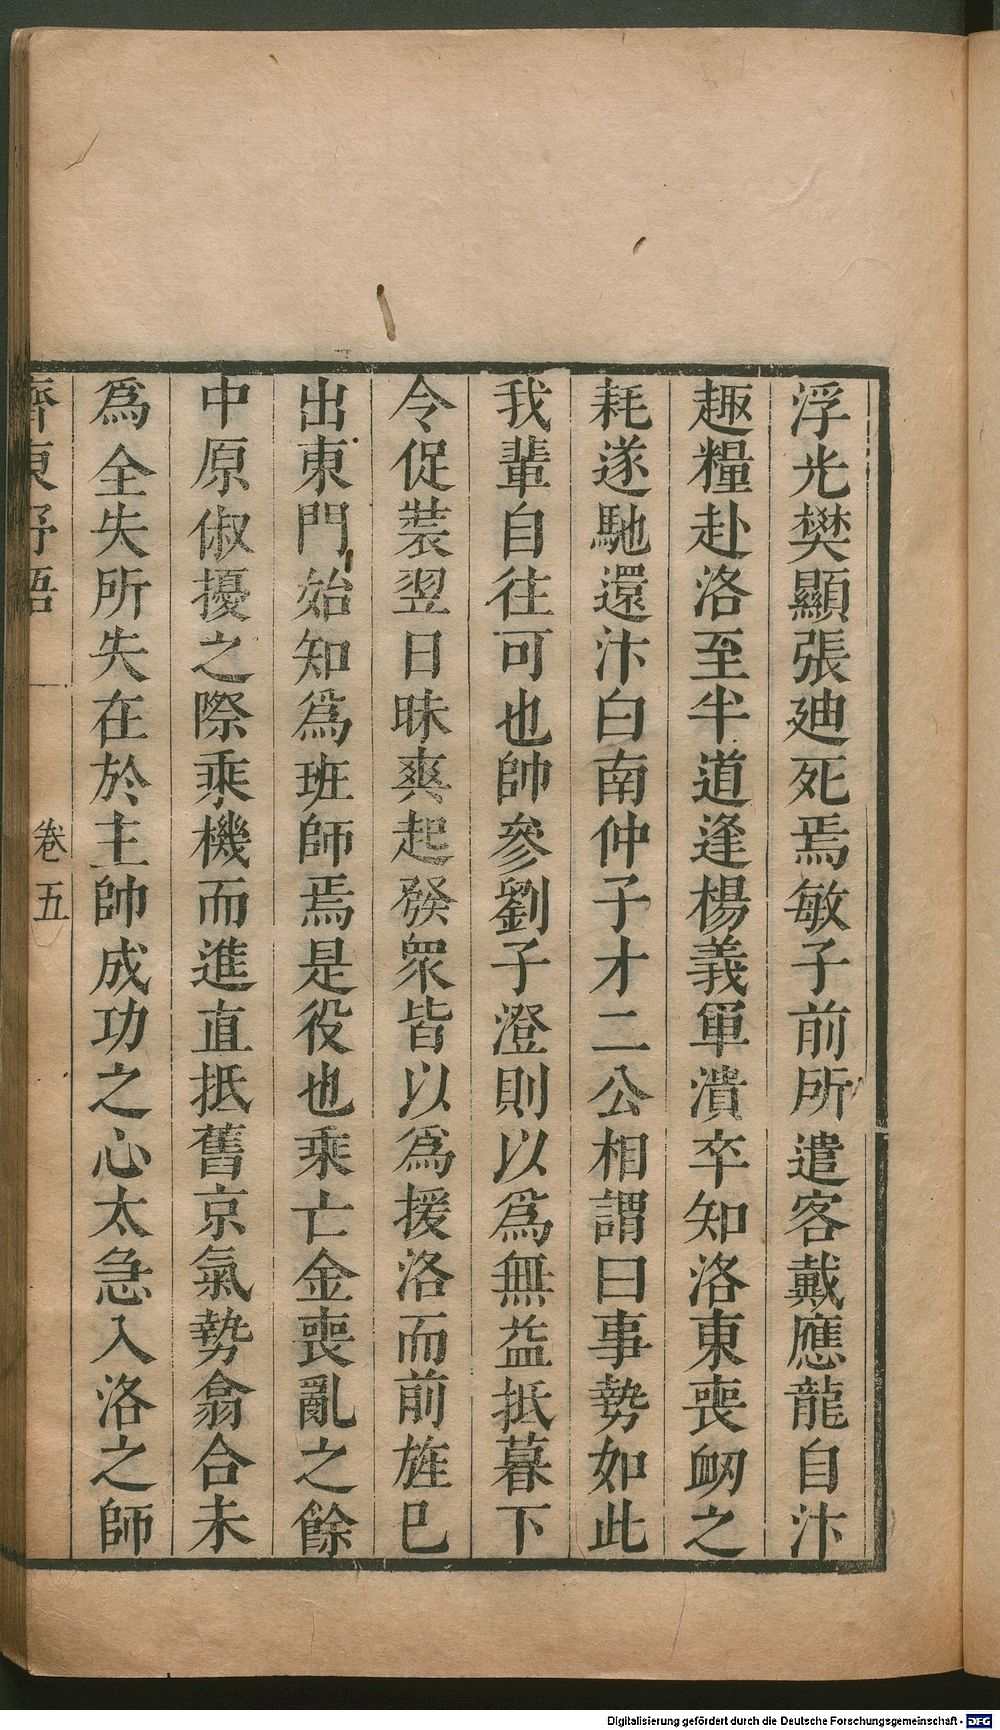 浮光樊顯張迪死焉敏子前所遣客戴應龍自汴
趣糧赴洛至半道逢楊義軍潰卒知洛東喪衂之
耗遂馳還汴白南仲子才二公相謂曰事勢如此
我輩自往可也帥參劉子澄則以爲無益抵暮下
令促裝翌日昧爽起發衆皆以爲援洛而前旌已
出東門始知爲班師焉是役也乘亡金喪亂之餘
中原俶擾之際乘機而進直抵舊京氣勢翕合未
爲全失所失在於主帥成功之心太急入洛之師
齊東野語 卷五
Digitalisierung gefördert durch die Deutsche Forschungsgemeinschaft - DFG